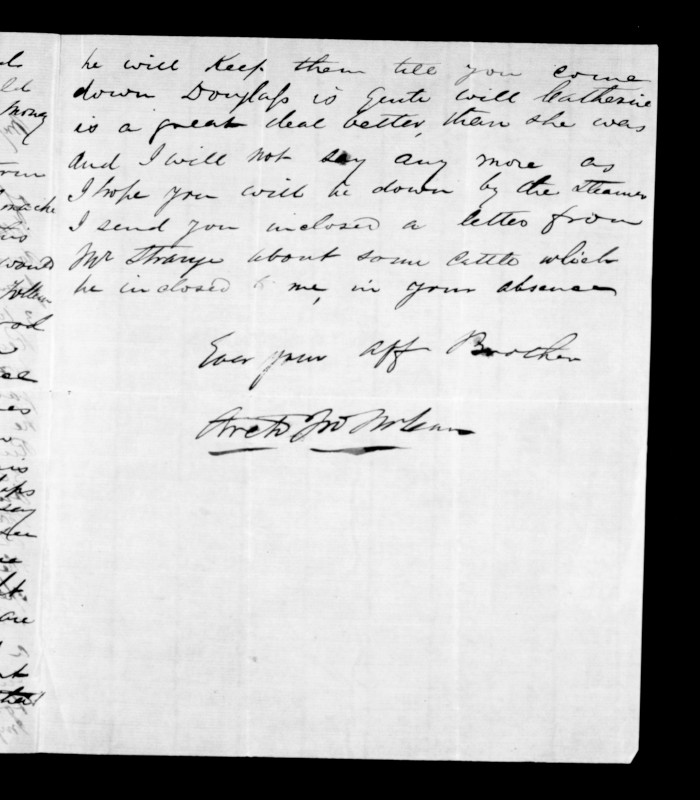 he will Keep them till you come
down Douglass is quite well Catherine
is a great deal better, than she was
and I will not say any more as
I hope you will be down by the steamer
I send you inclosed a letter from
Mr Strange about some cattle which
he inclosed to me, in your absence
Ever your aff Brother
Archd Jno McLean